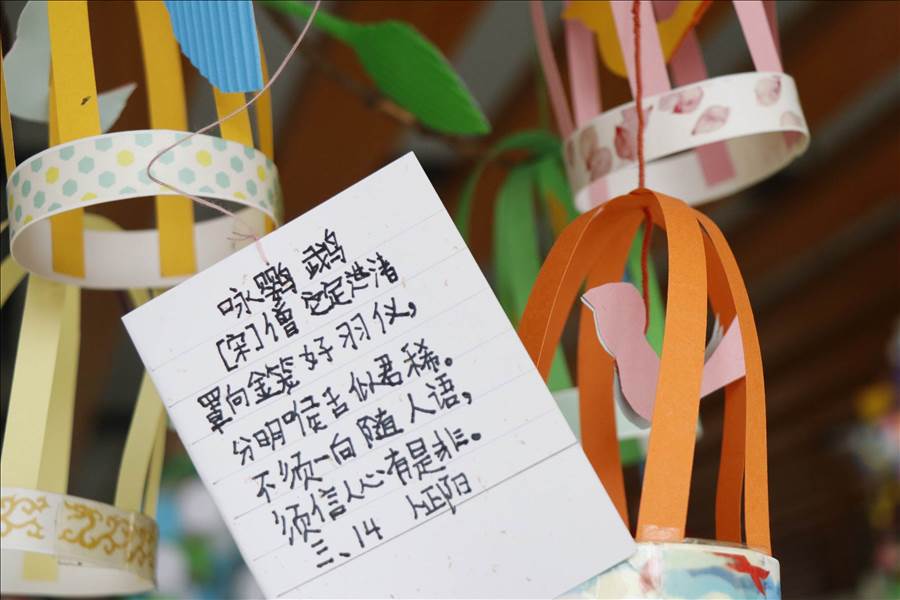 咏鹦鹉
[宋]僧
罩向金笼好羽仪,
分明喉舌似君稀。
不须一向随人语,
须信人心有是非。
三、14